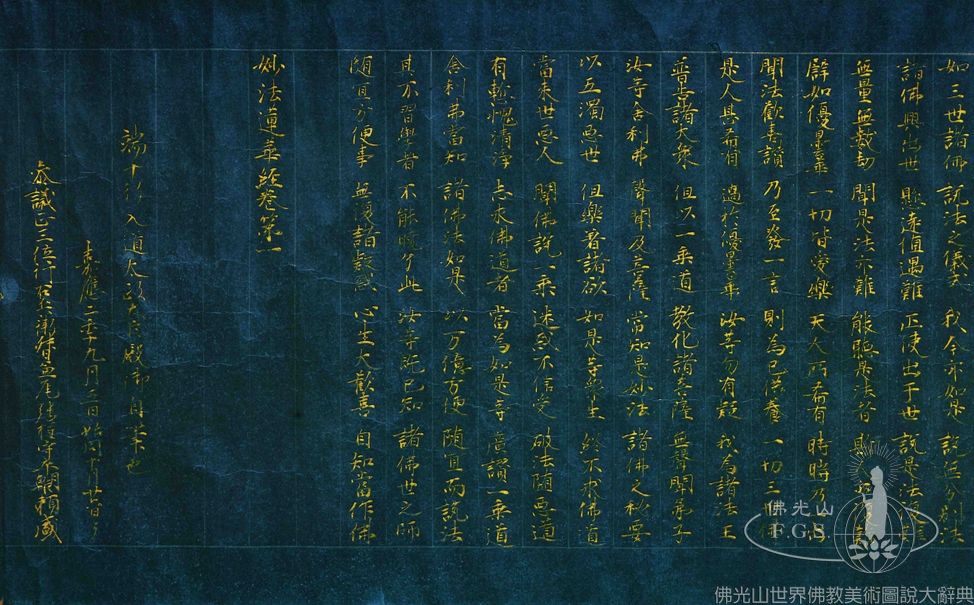 如三世諸佛 說法之儀式 我今亦如是 說無分別法
諸佛興出世 懸遠值遇難 正使出于世 說是法復難
無量無數劫 聞是法亦難 能聽是法者
譬如優曇華 一切皆愛樂 天人所希有 時時乃一出
聞法歡喜讚 乃至發一言 則為已供養 一切三世佛
是人甚希有 過於優曇華 汝等勿有疑 我為諸法王
普告諸大衆 但以一乘道 教化諸菩薩 無聲聞弟子
汝等舍利弗 聲聞及菩薩 當知是妙法 諸佛之秘要
以五濁惡世 但樂著諸欲 如是等衆生 終不求佛道
當來世惡人 聞佛說一乘 迷惑不信受 破法墮惡道
有慙愧清淨 志求佛道者 當為如是等 廣讚一乘道
舍利弗當知 諸佛法如是 以万億方便 隨宜而說法
其不習學者 不能曉了此 汝等既已知 諸佛世之師
隨宜方便事 無復諸疑惑 心生大歡喜 自知當作佛
妙法蓮華經卷第一
入道大 殿御自筆也
嘉應二季九月
參議正三位行
佛光山
F.G.S.
佛光山世界佛教美術圖說大辭典